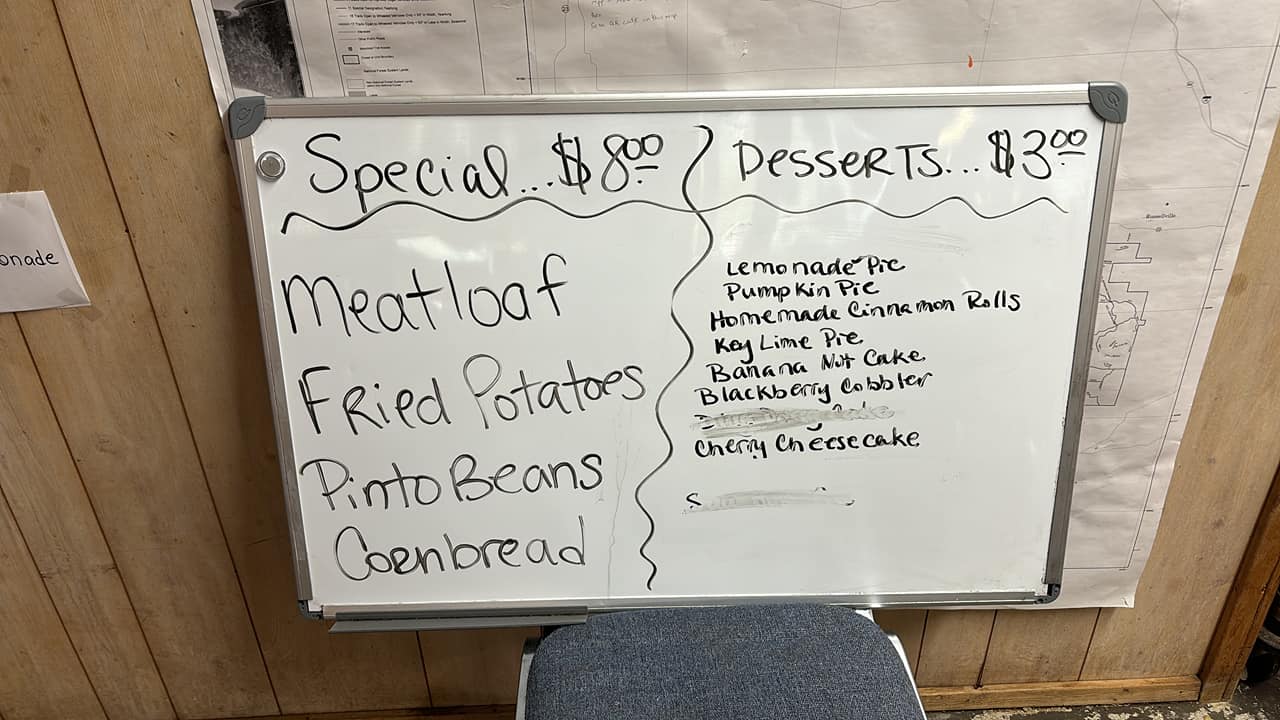 Special... $8.00
Meatloaf
Fried Potatoes
Pinto Beans
Cornbread
Desserts... $3.00
Lemonade Pie
Pumpkin Pie
Homemade Cinnamon Rolls
Key Lime Pie
Banana Nut Cake
Blackberry Cobbler
Cherry Cheesecake
onade
Russellville